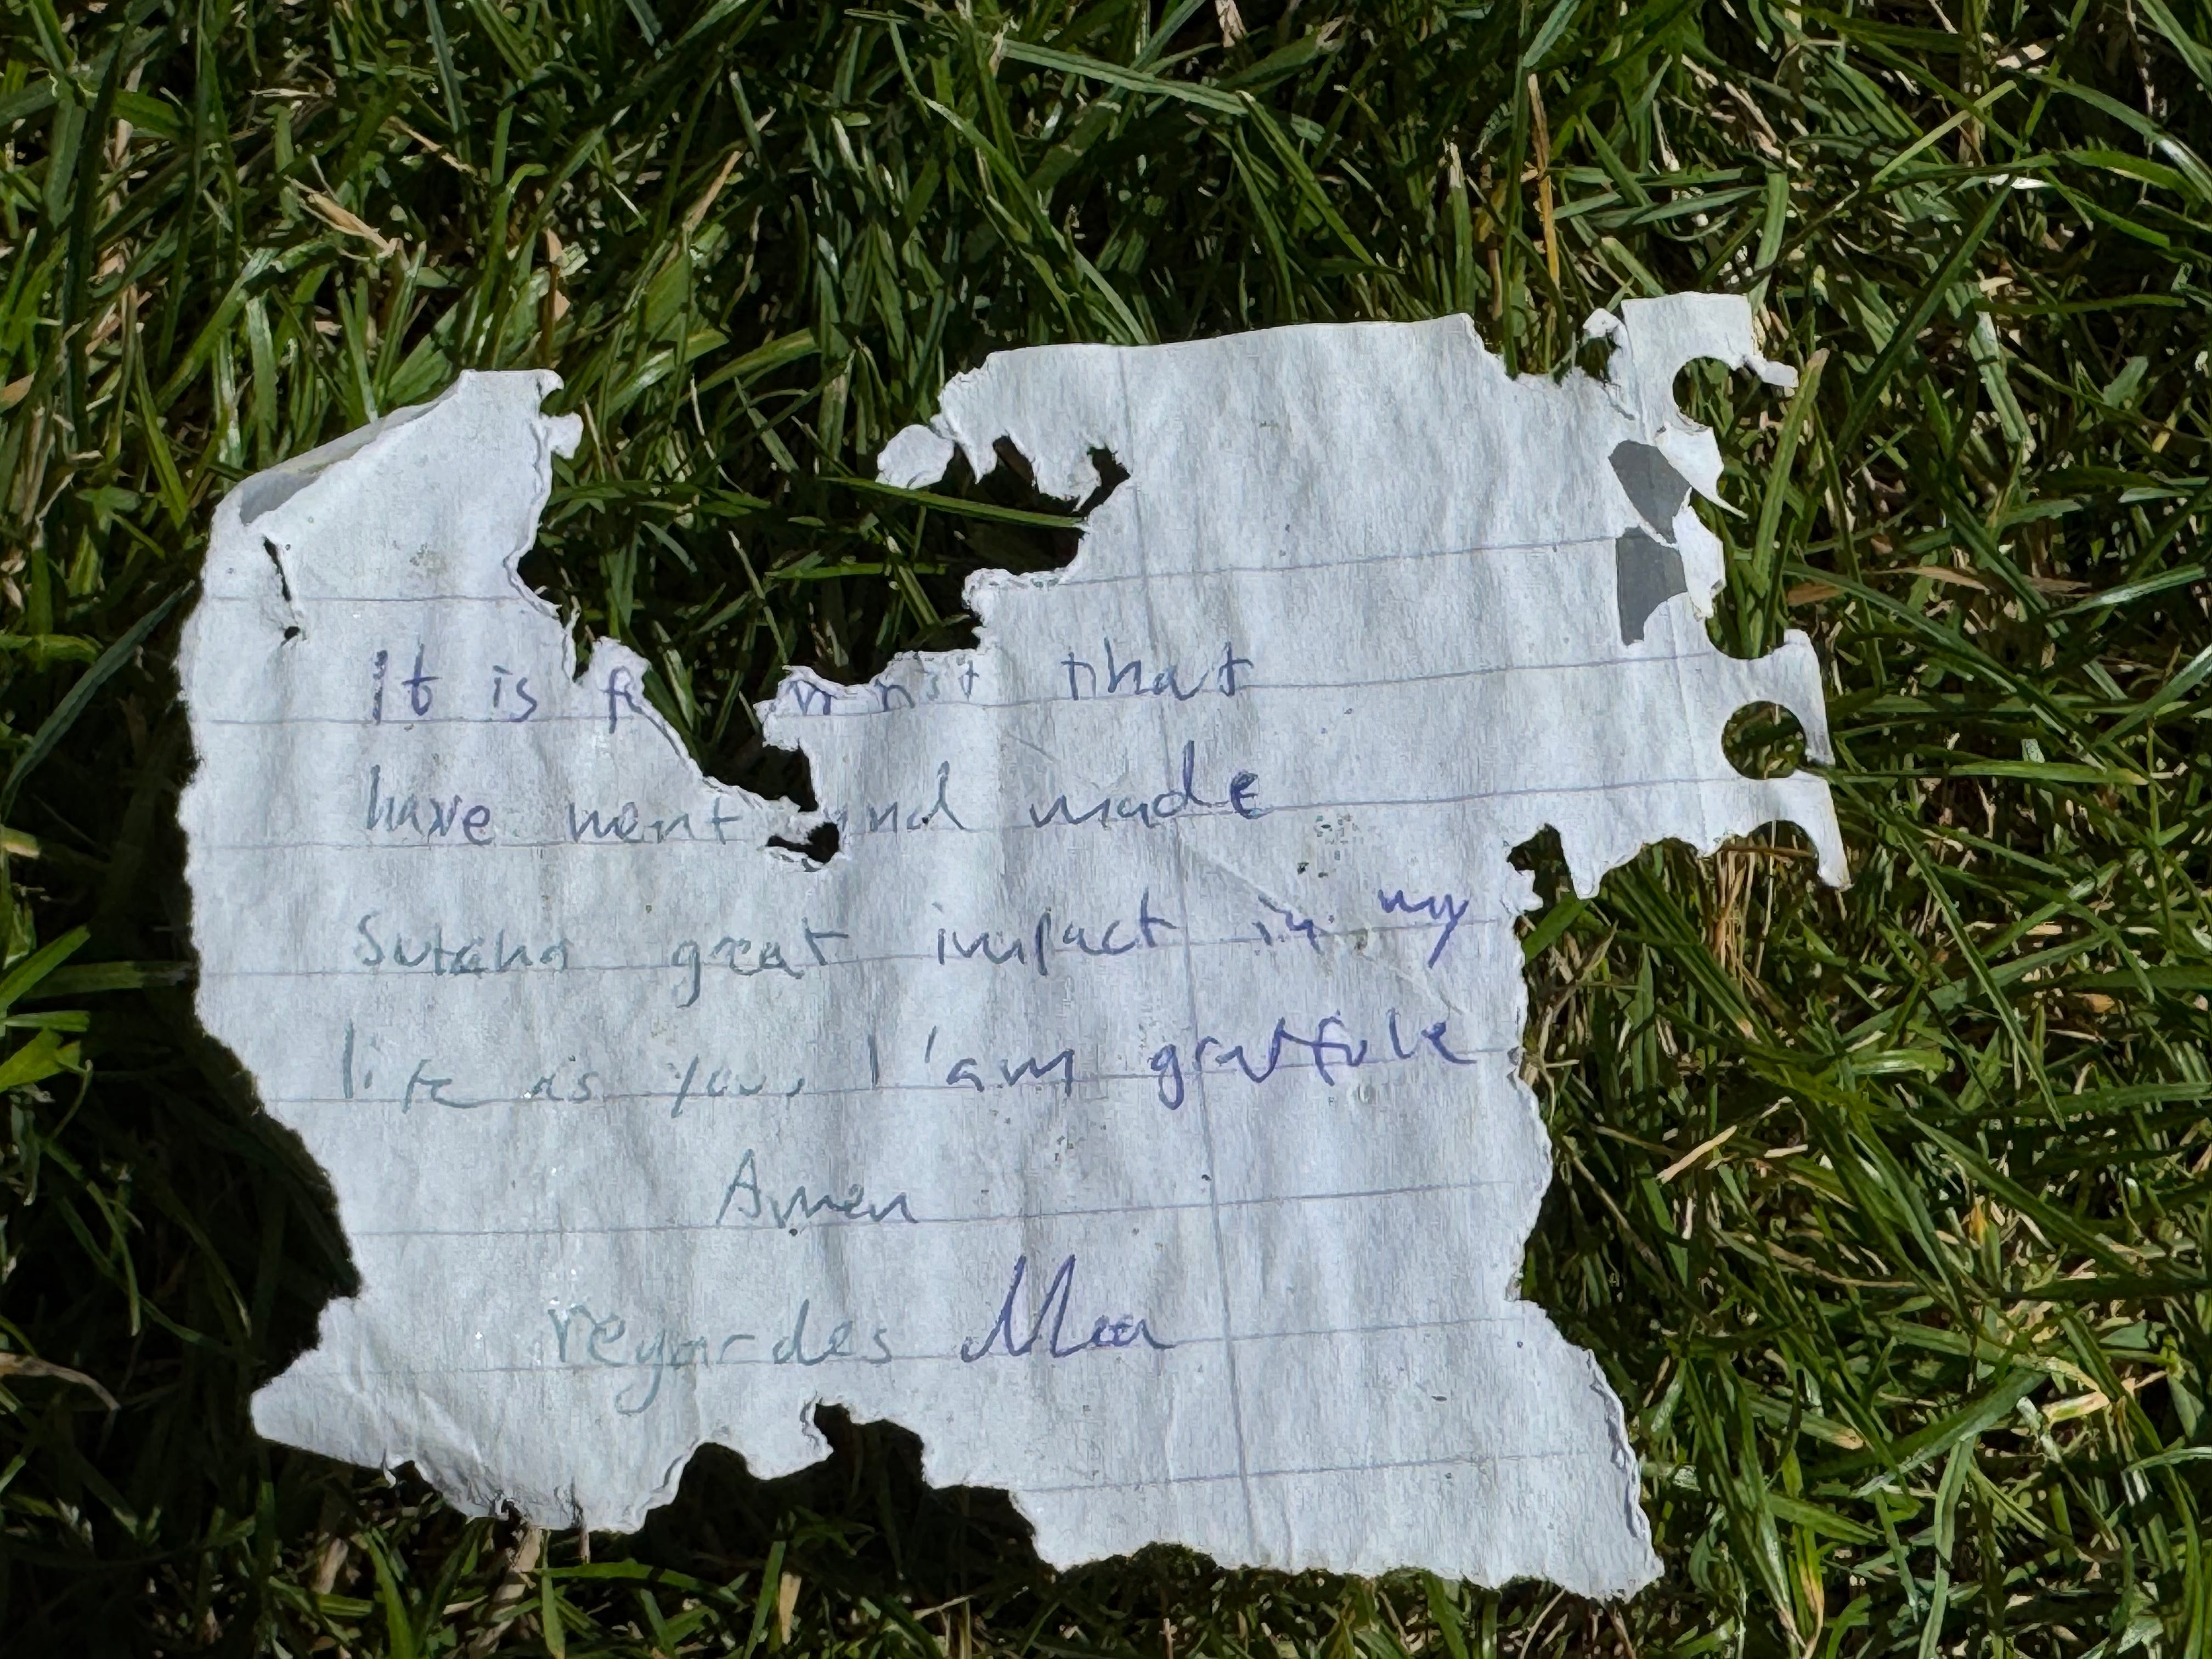 It is that
have ment and made
great impact in my
life as you, I 'am gratfule
Amen
regardes